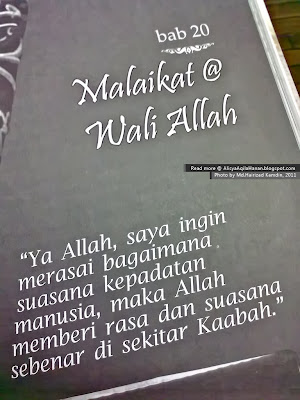 bab 20
Malaikat @
Wali Allah
Read more @ AlisyaAqilaHanan.blogspot.com
Photo by Md.Hairizad Kamdin, 2011
“Ya Allah, saya ingin
merasai bagaimana
suasana kepadatan
manusia, maka Allah
memberi rasa dan suasana
sebenar di sekitar Kaabah.”